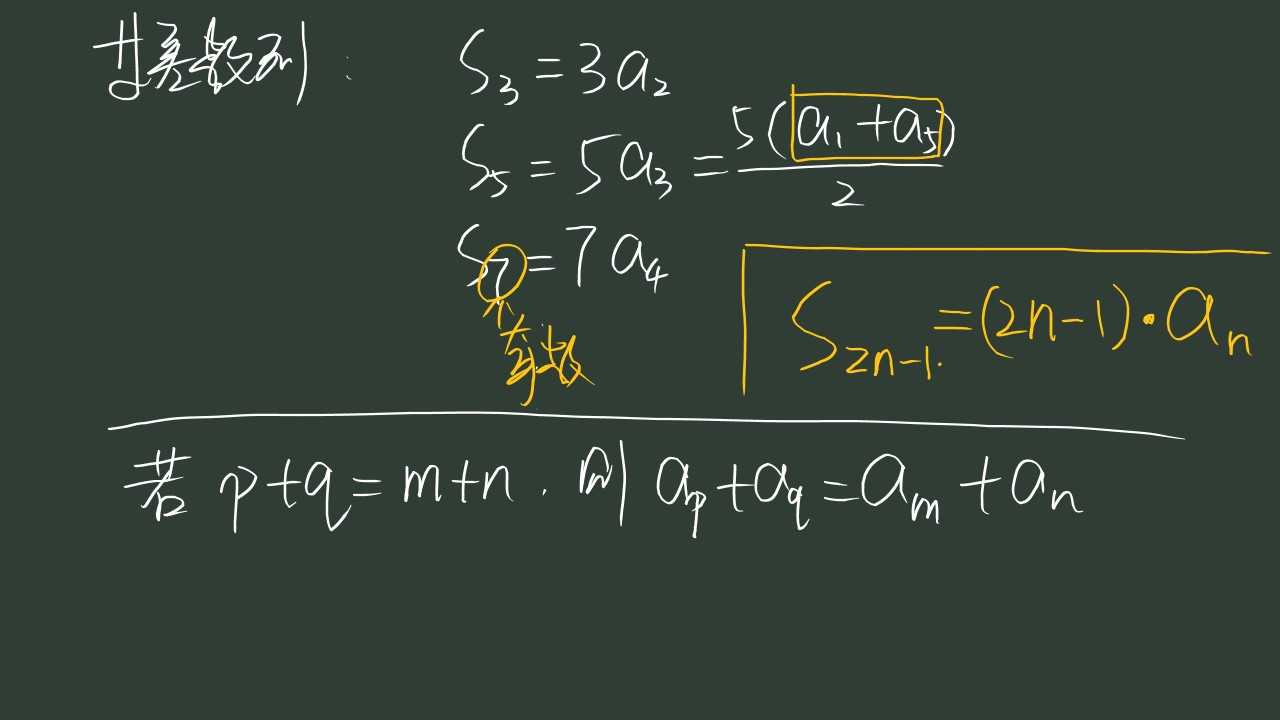 等差数列: S₃ = 3a₂
S₅ = 5a₃ = 5(a₁ + a₅) / 2
S₇ = 7a₄
奇数
S₂ₙ₋₁ = (2n-1)·aₙ
若 p+q = m+n. 则 aₚ + a_q = aₘ + aₙ